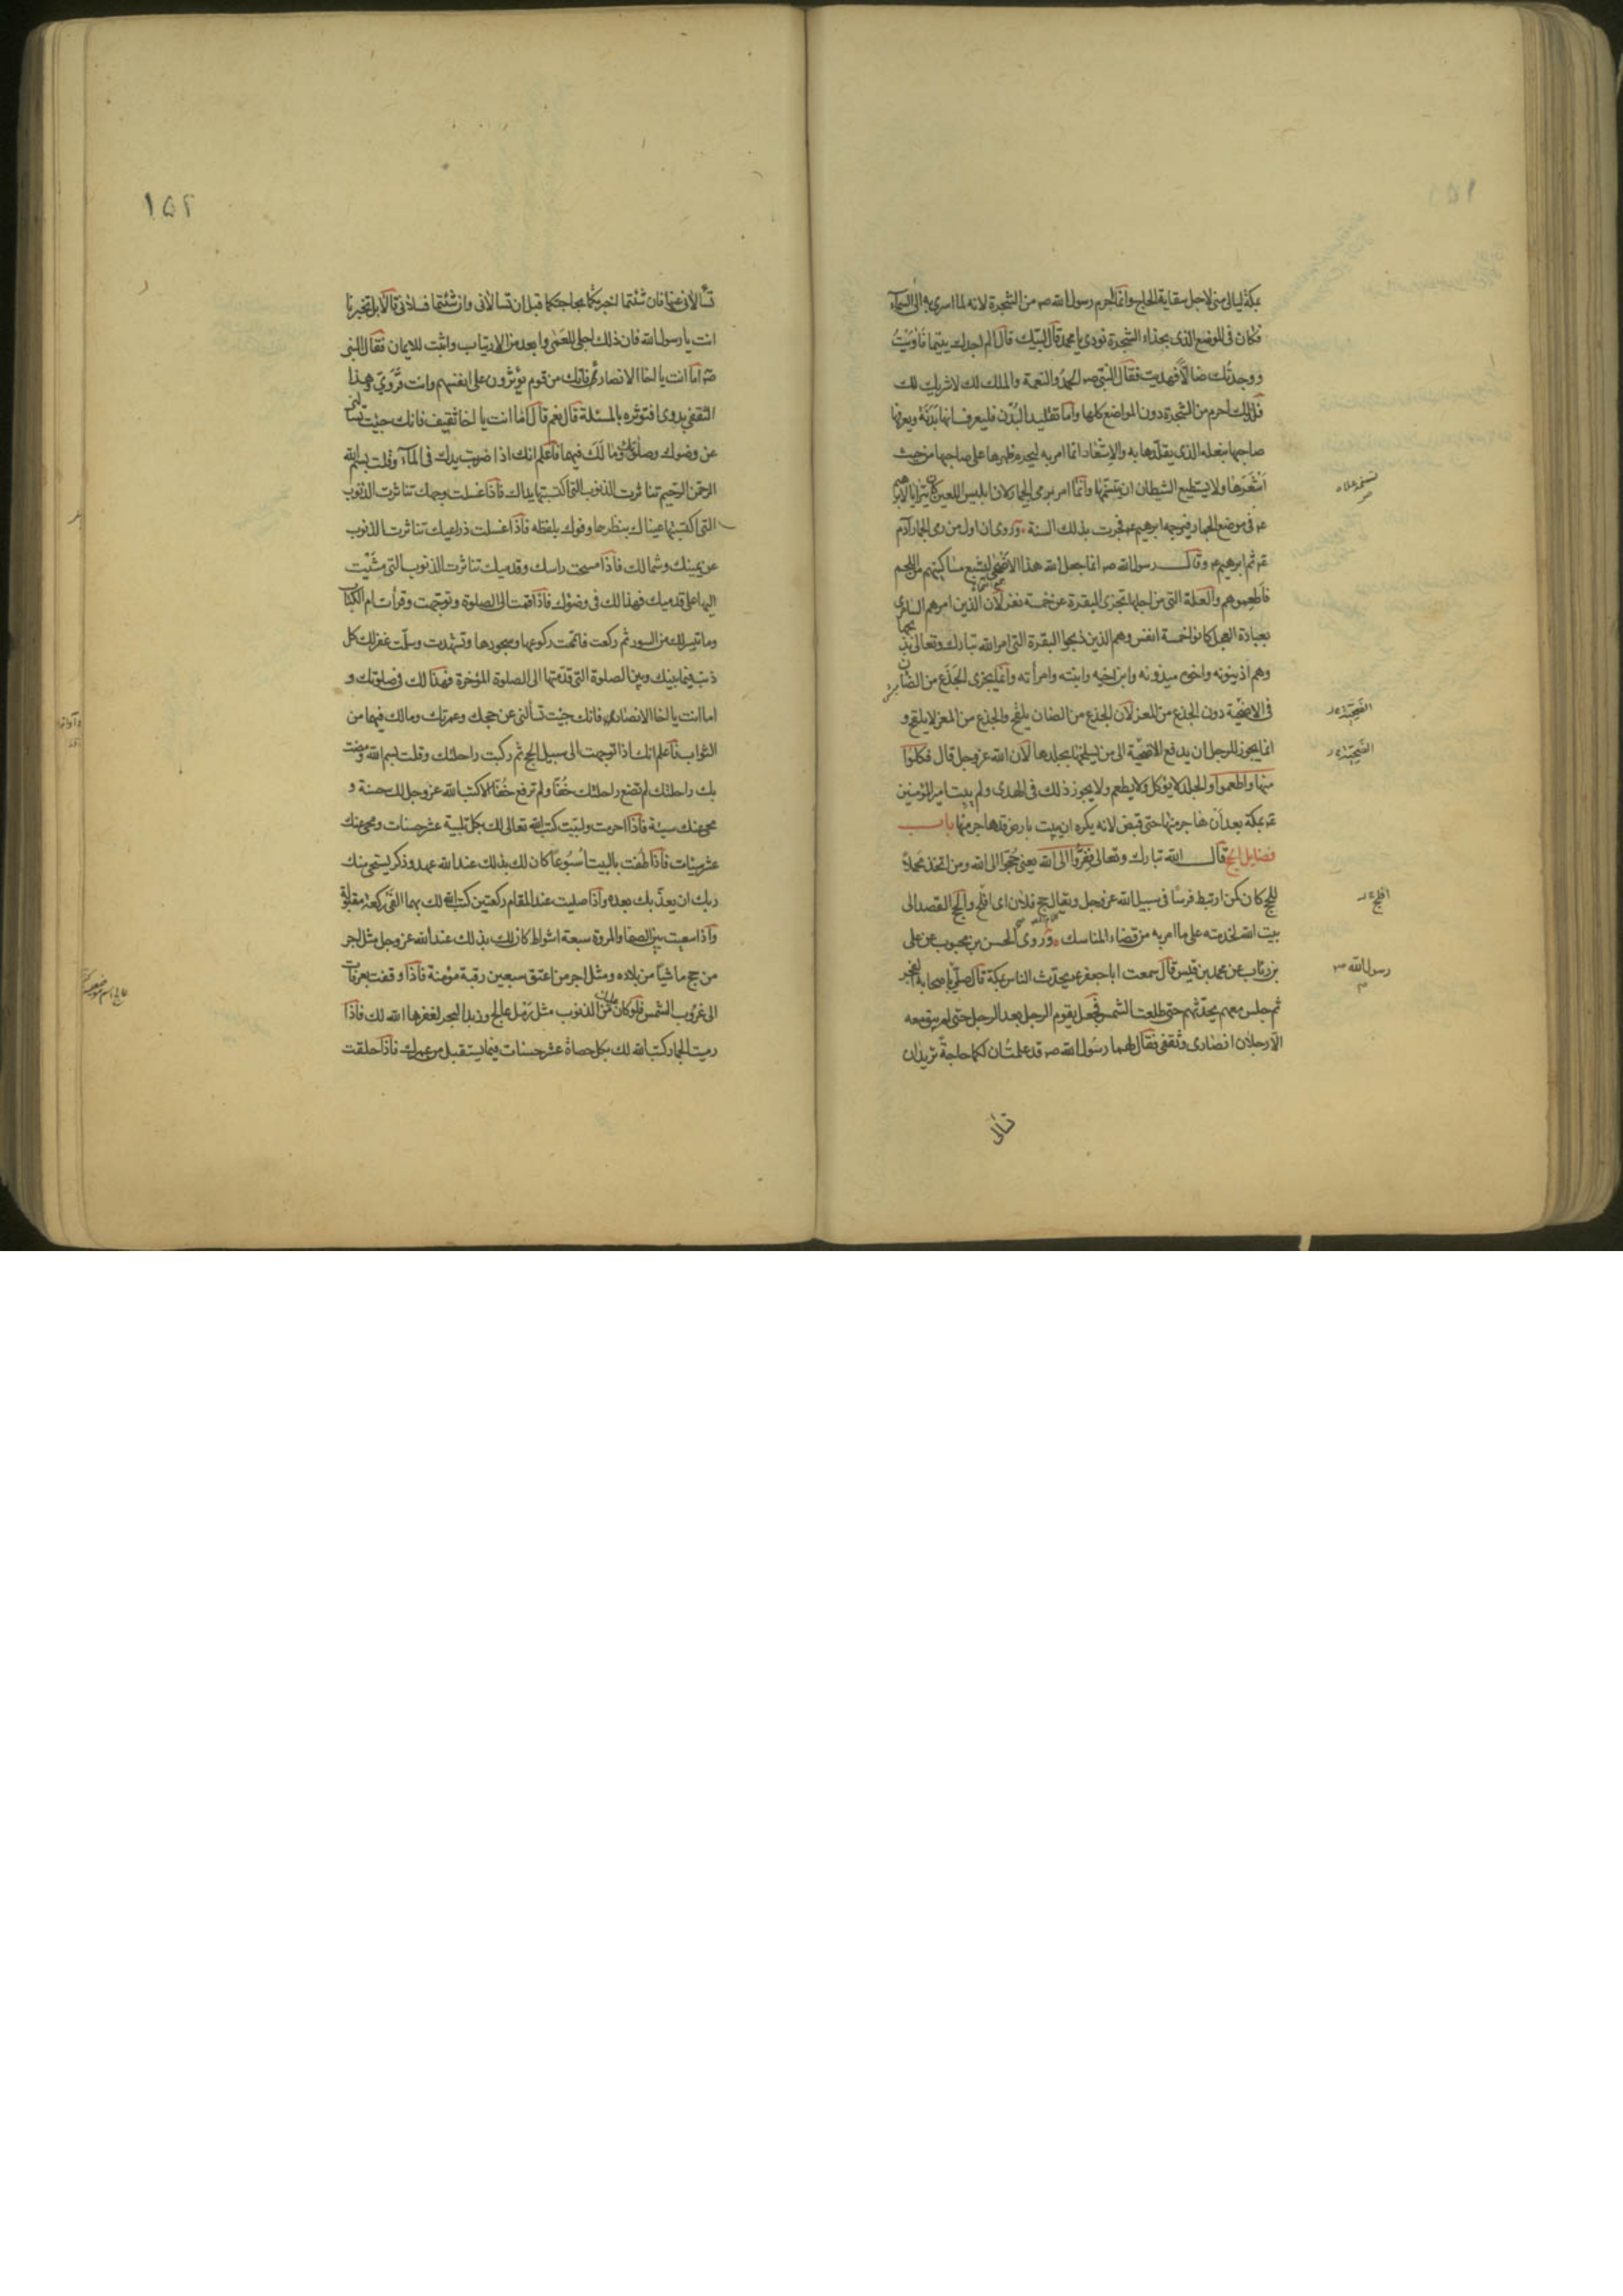 بمكة ليالى منى لاجل سقاية الحاج وانما احرم رسول الله صه من الشجرة لانه لما اسرى به الى السماء
فكان فى الموضع الذى بحذاء الشجرة نودى يا محمد قال لبيك قال الم اجدك يتيما فآويتُ
ووجدتُك ضالاً فهديت فقال النبى صه الحمدُ والنعمة والملك لك لا شريك لك
فلذلك احرم من الشجرة دون المواضع كلها واما تقليد البُدن فليعرف انها بدنة ويعرفها
صاحبها بنعله الذى يقلدها به والاشعار انما امر به ليحرم ظهرها على صاحبها من حيث
اشعرها ولا يستطيع الشيطان ان يتسنمها وانما امر برمى الجمار لان ابليس اللعين كان يترايا لابرهيم
عه فى موضع الجمار فيرجمه ابرهيم عه فجرت بذلك السنة وروى ان اول من رمى الجمار آدم
عه ثم ابرهيم عه وقال رسول الله صه انما جعل الله هذا الاضحى ليشبع مساكينهم من اللحم
فاطعموهم والعلة التى من اجلها تجزى البقرة عن خمسة نفر لان الذين امرهم السامرى
بعبادة العجل كانوا خمسة انفس وهم الذين ذبحوا البقرة التى امر الله تبارك وتعالى بذبحها
وهم اذينونه واخوه ميذونه وابن اخيه وابنته وامرأته وانما يجزى الجذع من الضان
فى الاضحية دون الجذع من المعز لان الجذع من الضان يلقح والجذع من المعز لا يلقح و
انما يجوز للرجل ان يدفع الاضحية الى من يسلخها بجلدها لان الله عز وجل قال فكلوا
منها واطعموا والجلد لا يؤكل ولا يطعم ولا يجوز ذلك فى الهدى ولم يبت امير المؤمنين
عه بمكة بعد ان هاجر منها حتى قبض لانه يكره ان يبيت بارض قد هاجر منها باب
فضايل الحج قال الله تبارك وتعالى ففروا الى الله يعنى حُجّوا الى الله ومن اتخذ محملاً
للحج كان كمن ارتبط فرسًا فى سبيل الله عز وجل ويقال حج فلان اى افلح والحج القصد الى
بيت الله لخدمته على ما امر به من قضاء المناسك وروى الحسن بن محبوب عن على
بن رئاب عن محمد بن قيس قال سمعت ابا جعفر عه يحدث الناس بمكة قال صلى باصحابه الفجر
ثم جلس معهم يحدّثهم حتى طلعت الشمس فجعل يقوم الرجل بعد الرجل حتى لم يبق معه
الا رجلان انصارى وثقفى فقال لهما رسُول الله صه قد علمت ان لكما حاجةً تريدان
افلج
رسول الله ص
تسألا
١٥٢
تسألانى عنها فان شئتما اخبرتكما بحاجتكما قبل ان تسألانى وان شئتما فسلانى قالا بل تخبرنا
انت يا رسول الله فان ذلك اجلى للعمى وابعد من الارتياب واثبت للايمان فقال النبى
صه اما انت يا اخا الانصار فانك من قوم يؤثرون على انفسهم وانت قروىّ وهذا
الثقفى بدوى افتؤثره بالمسئلة قال نعم قال اما انت يا اخا ثقيف فانك جئت تسألنى
عن وضوئك وصلوتك وما لك فيهما فاعلم انك اذا ضربت يدك فى الماء وقلت بسم الله
الرحمن الرحيم تناثرت الذنوب التى اكتسبتها يداك فاذا غسلت وجهك تناثرت الذنوب
التى اكتسبتها عيناك بنظرها وفوك بلفظه فاذا غسلت ذراعيك تناثرت الذنوب
عن يمينك وشمالك فاذا مسحت راسك وقدميك تناثرت الذنوب التى مشيت
اليها على قدميك فهذا لك فى وضوئك فاذا قمت الى الصلوة وتوجهت وقرأت ام الكتاب
وما تيسر لك من السور ثم ركعت فاتممت ركوعها وسجودها وتشهدت وسلمت غفر لك كل
ذنب فيما بينك وبين الصلوة التى قدمتها الى الصلوة المؤخرة فهذا لك فى صلوتك و
اما انت يا اخا الانصار فانك جئت تسألنى عن حجك وعمرتك وما لك فيهما من
الثواب فاعلم انك اذا توجهت الى سبيل الحج ثم ركبت راحلتك وقلت بسم الله ومضت
بك راحلتك لم تضع راحلتك خُفّا ولم ترفع خُفّا الا كتب الله عز وجل لك حسنة و
محى عنك سيئة فاذا احرمت ولبّيت كتب الله تعالى لك بكل تلبية عشر حسنات ومحى عنك
عشر سيئات فاذا طُفت بالبيت اُسْبُوعًا كان لك بذلك عند الله عهد وذكر يستحيى منك
ربك ان يعذّبك بعده واذا صليت عند المقام ركعتين كتب الله لك بهما الفى ركعة مقبولة
واذا سعيت بين الصفا والمروة سبعة اشواط كان لك بذلك عند الله عز وجل مثل اجر
من حج ماشيًا من بلاده ومثل اجر من اعتق سبعين رقبة مؤمنة فاذا وقفت بعرفات
الى غروب الشمس فلو كان عليك من الذنوب مثل رمل عالج وزبد البحر لغفرها الله لك فاذا
رميت الجمار كتب الله لك بكل حصاة عشر حسنات فيما يستقبل من عمرك فاذا حلقت